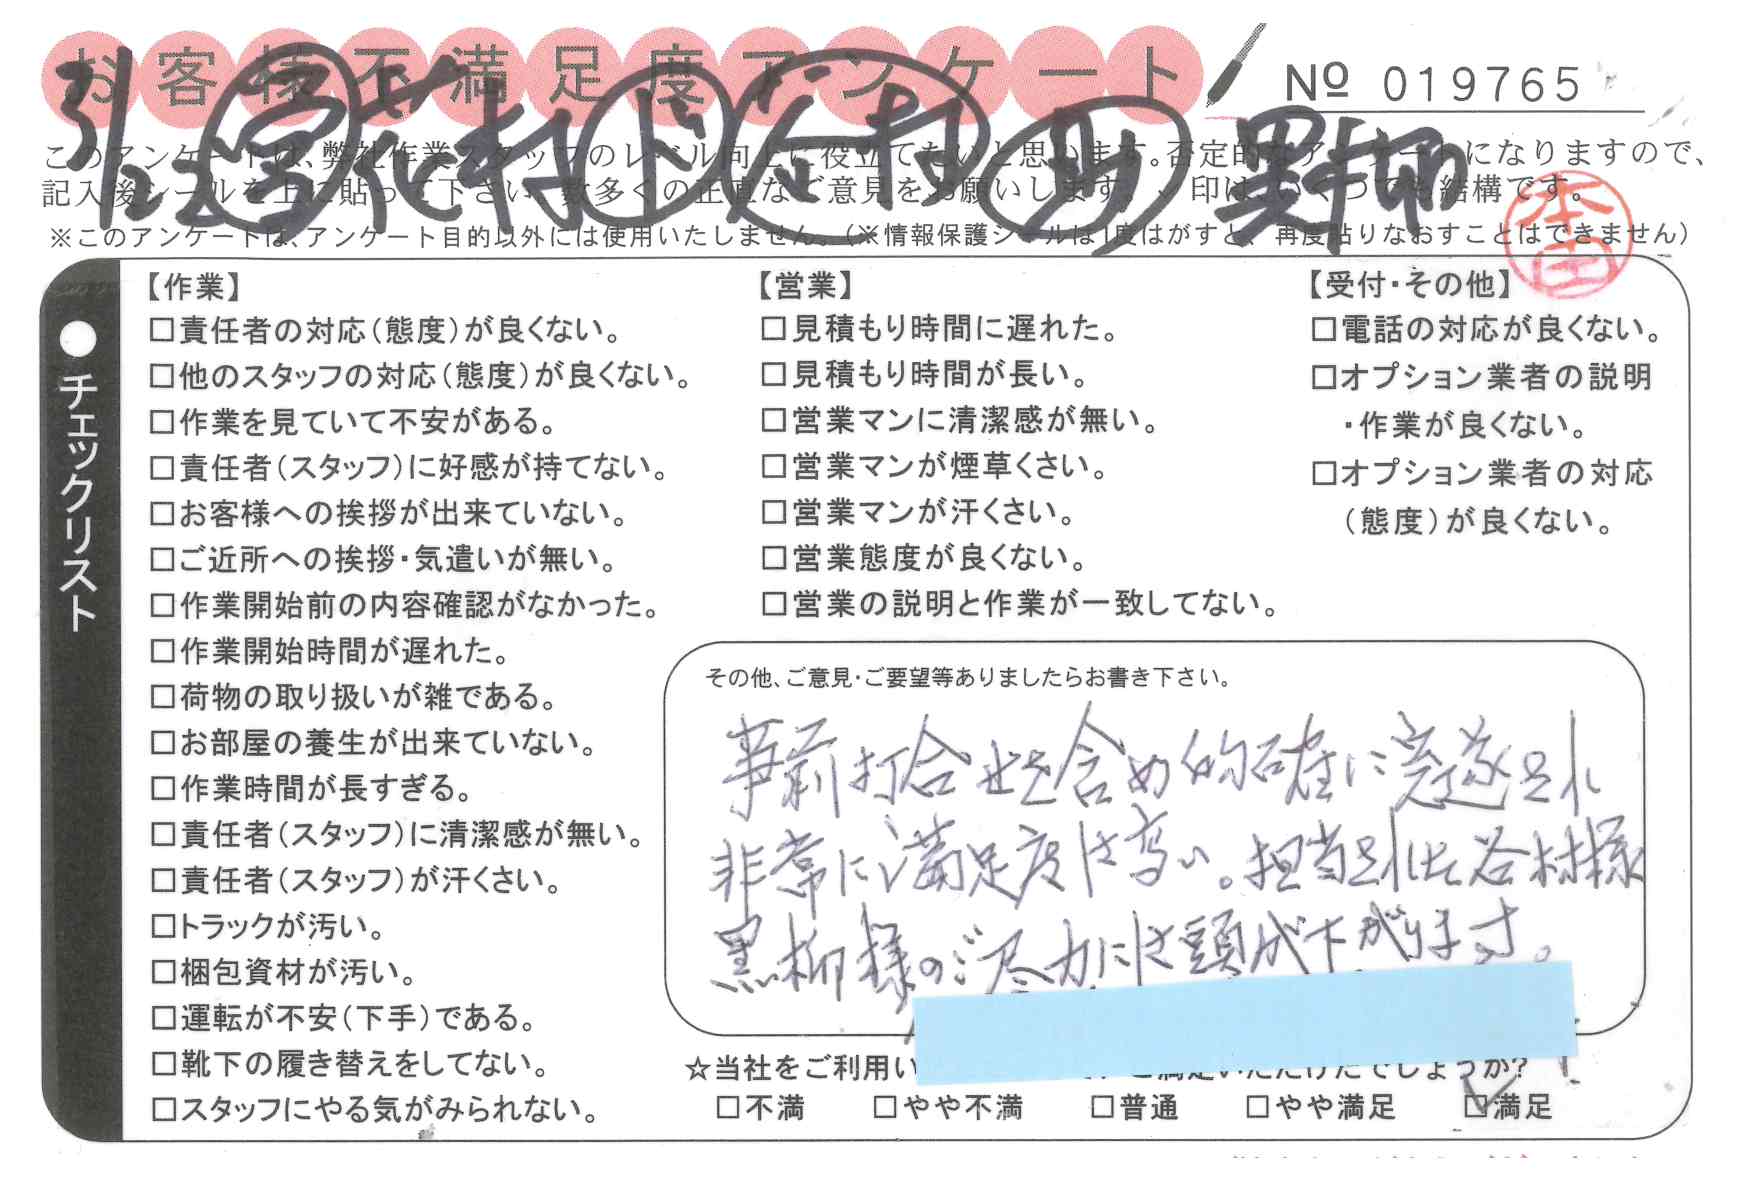 お客様不満足度アンケート
№ 019765
3/22 宮 花村 上 谷村 助 黒柳
このアンケートは、弊社作業スタッフのレベル向上に役立てたいと思います。否定的なアンケートになりますので、
記入後シールを上に貼って下さい。数多くの正直なご意見をお願いします。✓印は、いくつでも結構です。
※このアンケートは、アンケート目的以外には使用いたしません。(※情報保護シールは1度はがすと、再度貼りなおすことはできません)
本田
●チェックリスト
【作業】
□責任者の対応(態度)が良くない。
□他のスタッフの対応(態度)が良くない。
□作業を見ていて不安がある。
□責任者(スタッフ)に好感が持てない。
□お客様への挨拶が出来ていない。
□ご近所への挨拶・気遣いが無い。
□作業開始前の内容確認がなかった。
□作業開始時間が遅れた。
□荷物の取り扱いが雑である。
□お部屋の養生が出来ていない。
□作業時間が長すぎる。
□責任者(スタッフ)に清潔感が無い。
□責任者(スタッフ)が汗くさい。
□トラックが汚い。
□梱包資材が汚い。
□運転が不安(下手)である。
□靴下の履き替えをしてない。
□スタッフにやる気がみられない。
【営業】
□見積もり時間に遅れた。
□見積もり時間が長い。
□営業マンに清潔感が無い。
□営業マンが煙草くさい。
□営業マンが汗くさい。
□営業態度が良くない。
□営業の説明と作業が一致してない。
【受付・その他】
□電話の対応が良くない。
□オプション業者の説明
・作業が良くない。
□オプション業者の対応
(態度)が良くない。
その他、ご意見・ご要望等ありましたらお書き下さい。
事前打合せを含め的確に完遂され
非常に満足度は高い。担当された谷村様
黒柳様のご尽力には頭が下がります。
☆当社をご利用い
満足いただけたでしょうか?
□不満 □やや不満 □普通 □やや満足 ☑満足